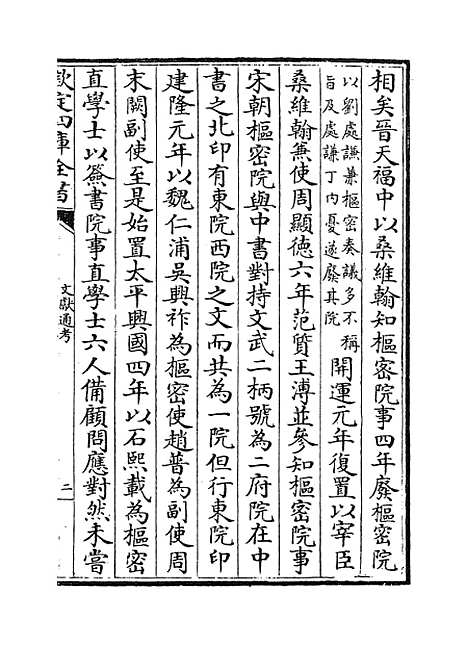 相矣晉天福中以桑維翰知樞密院事四年廢樞密院
以劉處謙兼樞密奏議多不稱
旨及處謙丁內憂遂廢其院
開運元年復置以宰臣
桑維翰兼使周顯德六年范質王溥並參知樞密院事
宋朝樞密院與中書對持文武二柄號為二府院在中
書之北印有東院西院之文而共為一院但行東院印
建隆元年以魏仁浦吳興祚為樞密使趙普為副使周
末闕副使至是始置太平興國四年以石熙載為樞密
直學士以簽書院事直學士六人備顧問應對然未嘗
欽定四庫全書
文獻通考
二